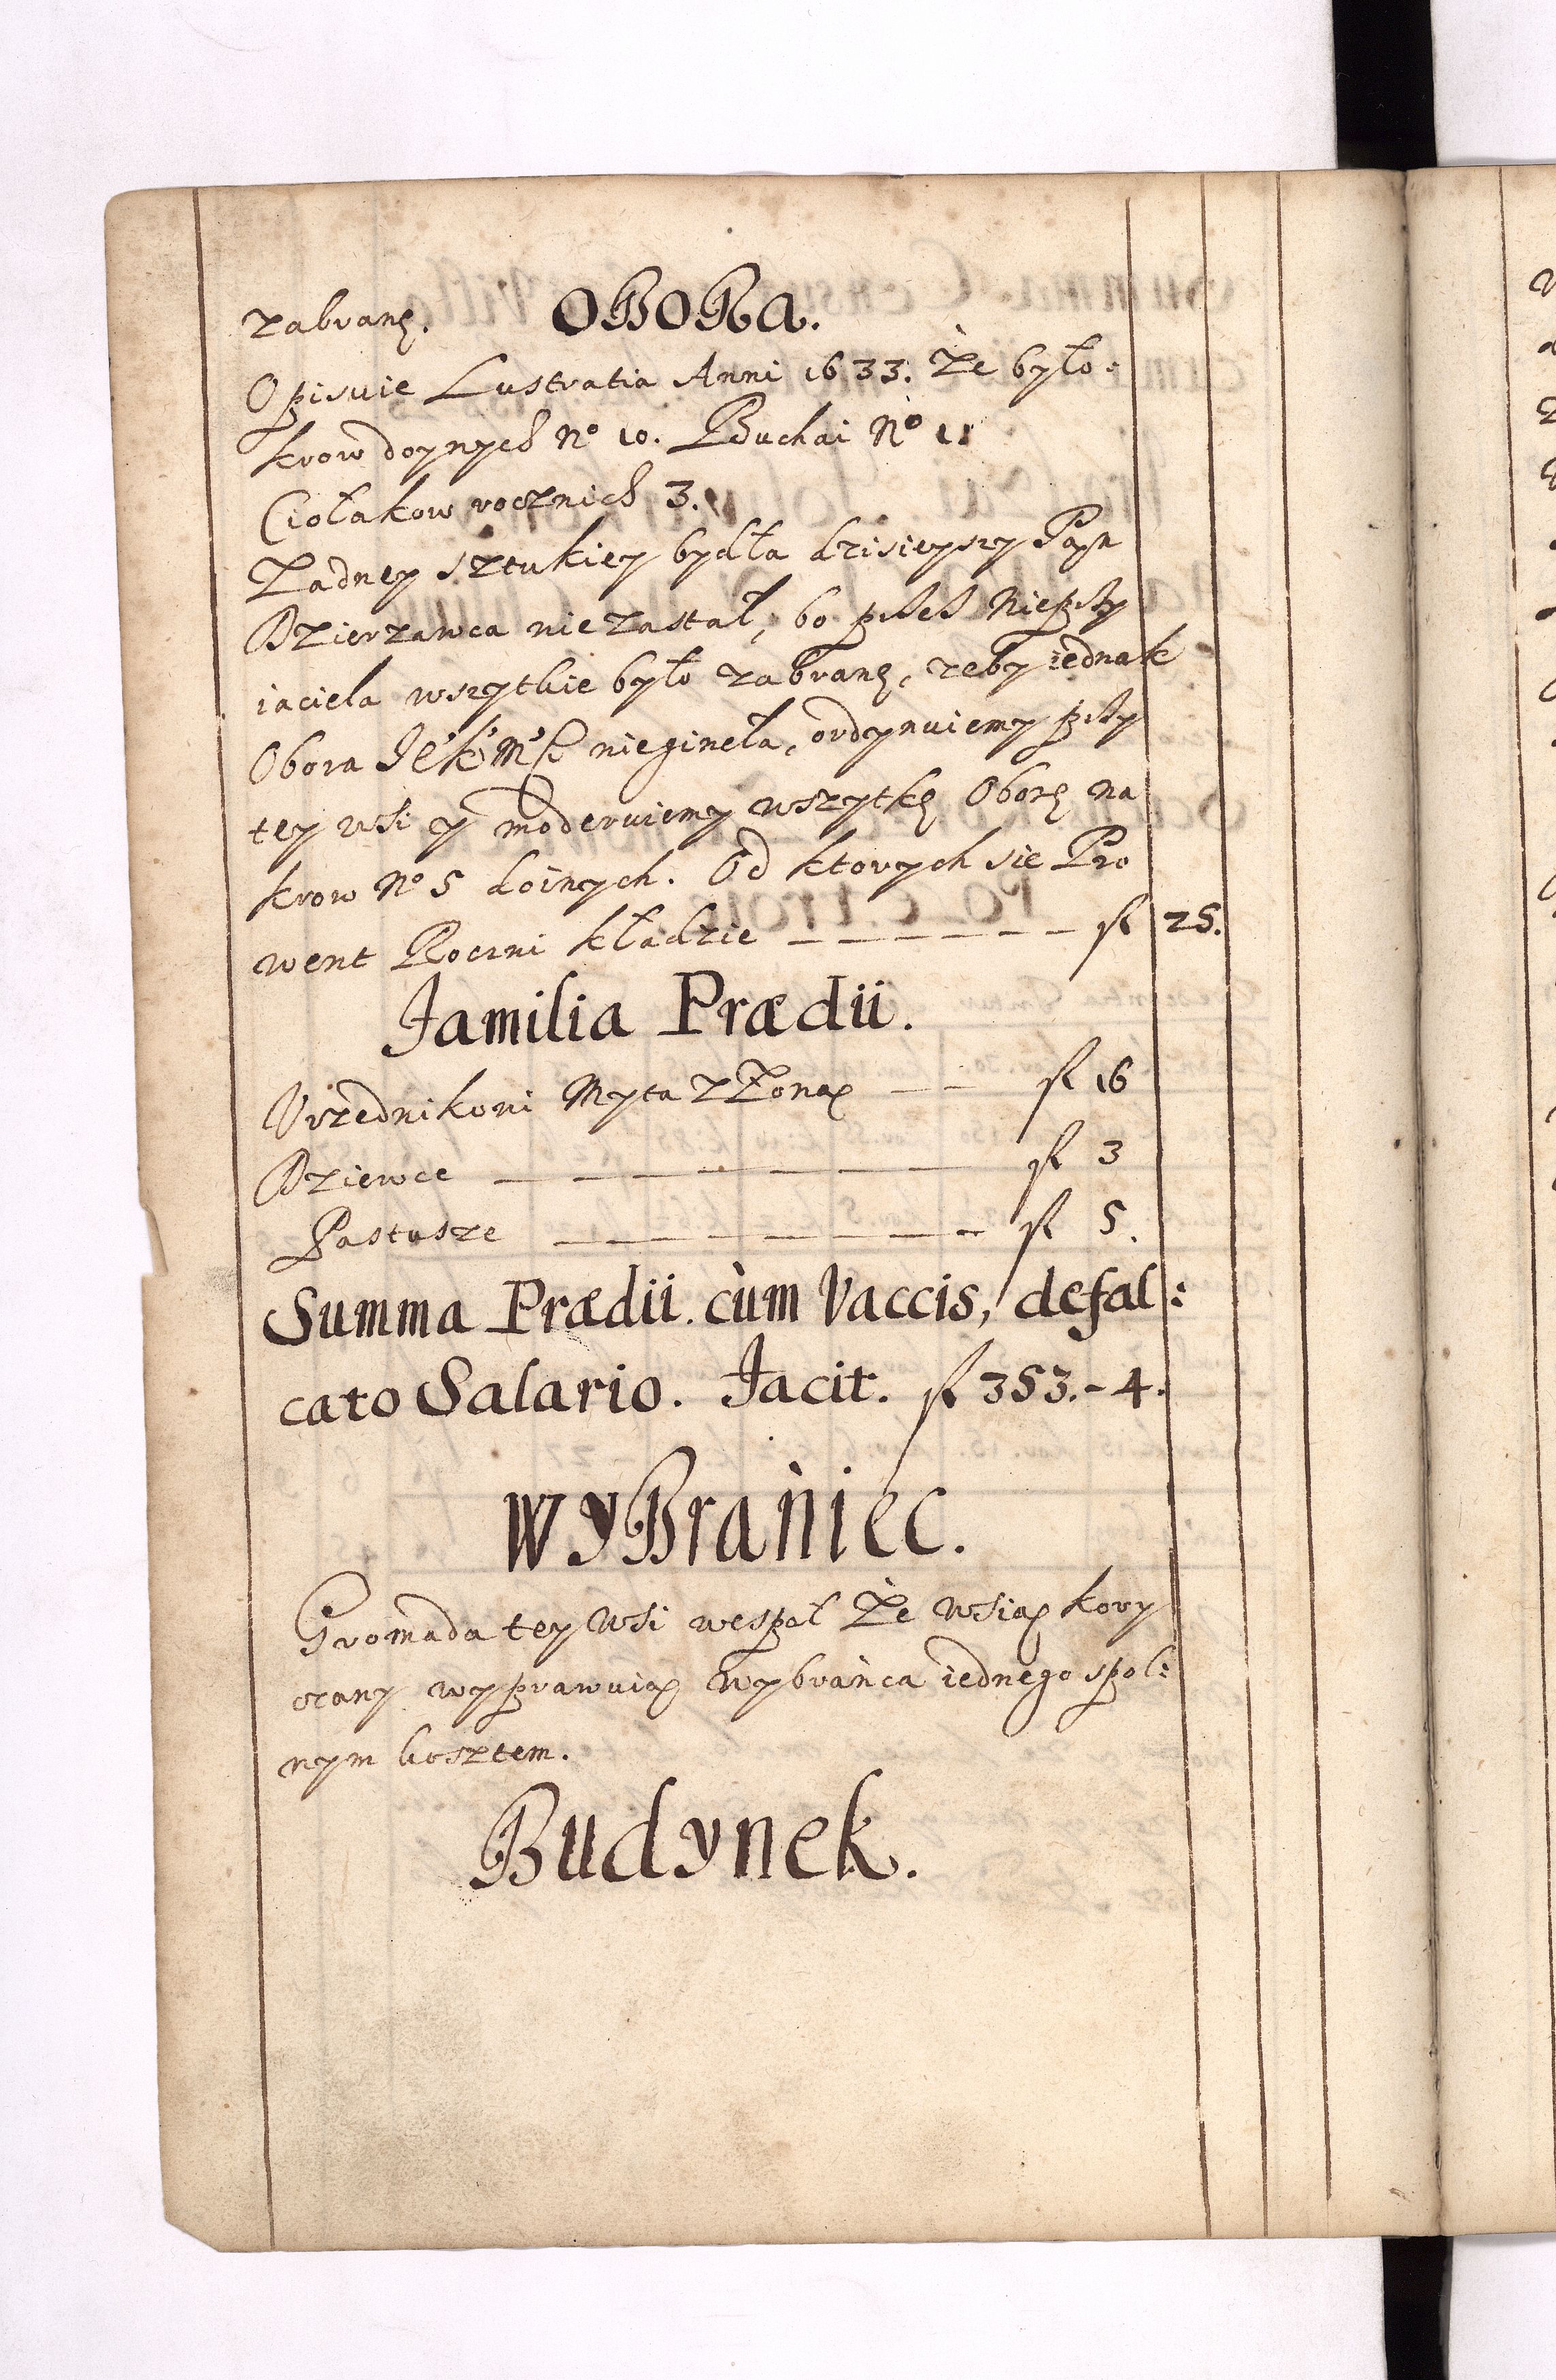 zabranę. OBORA.
Opisuie Lustratia Anni 1633. Że było:
krow doynych No 10. Buchai No 1
Ciołakow rocznich 3.
Żadney sztukiey bydła dzisieyszy Pan
Dzierzawca nie zastał, bo przes Nieprzy
iaciela wszytkie było zabranę, zeby iednak
Obora JeKMsci niegineła, ordynuiemy przy
tey wsi y moderuiemy wszytkę Oborę na
krow No 5 doinych. Od ktorych sie Pro
went Roczni kładzie fl 25.
Familia Prædii.
Vrzednikoui Myta z Żoną fl 16
Dziewce fl 3
Pastusze fl 5.
Summa Prædii. cùm Vaccis, defal:
cato Salario. Facit. fl 353.-4.
WYBraniec.
Gromada tey Wsi wespoł Że Wsią kory
ozany wyprawuią Wybranca iednego spol:
nym kosztem.
Budynek.